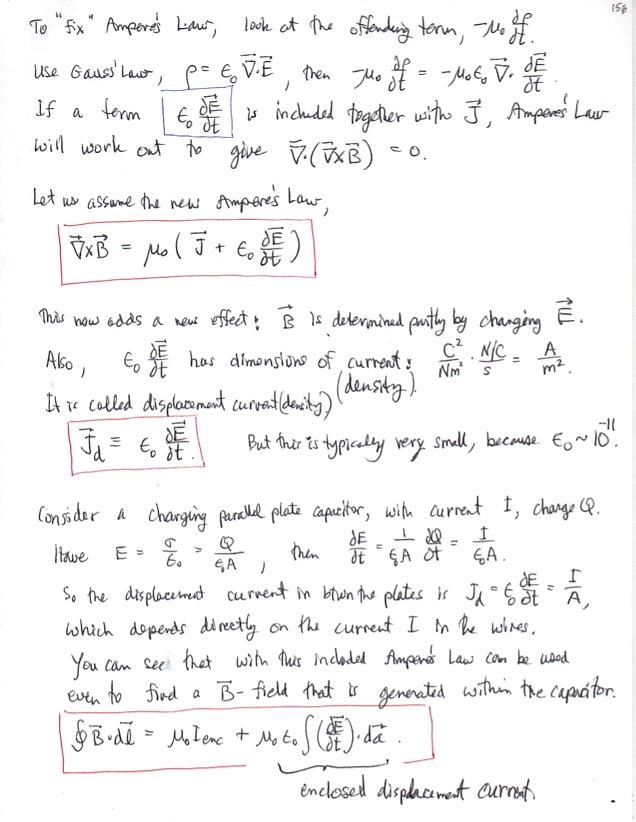 156
To "fix" Ampere's Law, look at the offending term, -μ₀ ∂ρ/∂t.
Use Gauss' Law, ρ = ε₀ ∇⃗·E⃗, then -μ₀ ∂ρ/∂t = -μ₀ε₀ ∇⃗· ∂E⃗/∂t.
If a term ε₀ ∂E⃗/∂t is included together with J⃗, Ampere's Law
will work out to give ∇⃗·(∇⃗×B⃗) = 0.
Let us assume the new Ampere's Law,
∇⃗×B⃗ = μ₀ ( J⃗ + ε₀ ∂E⃗/∂t )
This now adds a new effect: B⃗ is determined partly by changing E⃗.
Also, ε₀ ∂E⃗/∂t has dimensions of current: C²/Nm² · N/C/s = A/m².
(density).
It is called displacement current (density)
J⃗d ≡ ε₀ ∂E⃗/∂t. But this is typically very small, because ε₀ ~ 10⁻¹¹.
Consider a charging parallel plate capacitor, with current I, charge Q.
Have E = σ/ε₀ = Q/ε₀A, then ∂E/∂t = 1/ε₀A ∂Q/∂t = I/ε₀A.
So the displacement current in btwn the plates is Jd = ε₀ ∂E/∂t = I/A,
which depends directly on the current I in the wires.
You can see that with this included Ampere's Law can be used
even to find a B⃗-field that is generated within the capacitor.
∮ B⃗·dl⃗ = μ₀ Ienc + μ₀ ε₀ ∫(∂E⃗/∂t)·da⃗.
enclosed displacement current.